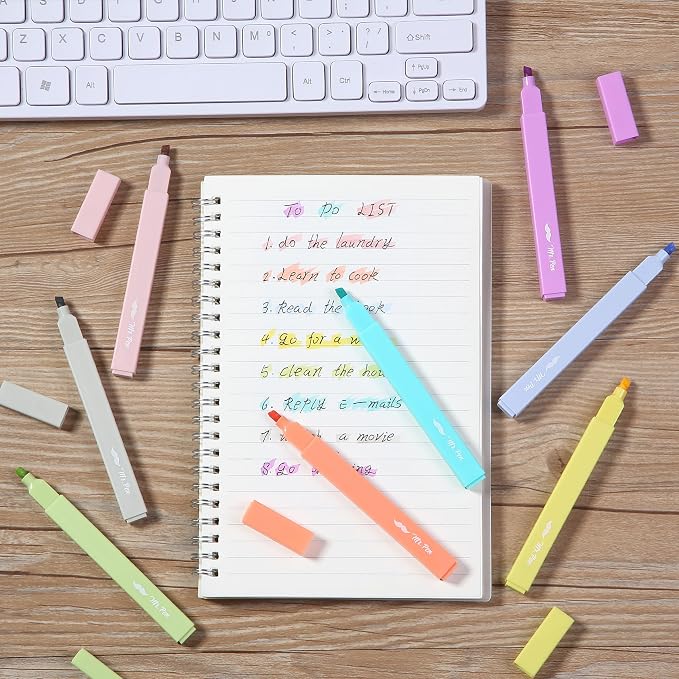 Z X C V B N M < , > . ? / ⇧ Shift
Alt Alt Ctrl
↑ PgUp
← Home ↓ PgDn → End
To Do LIST
1. do the laundry
2. Learn to cook
3. Read the
4. Go for a
5. clean the
6. REPLY E-mails
7. a movie
8. Go
Mr. Pen
Mr. Pen
Mr. Pen
Mr. Pen
Mr. Pen
Mr. Pen
Mr. Pen
Mr. Pen